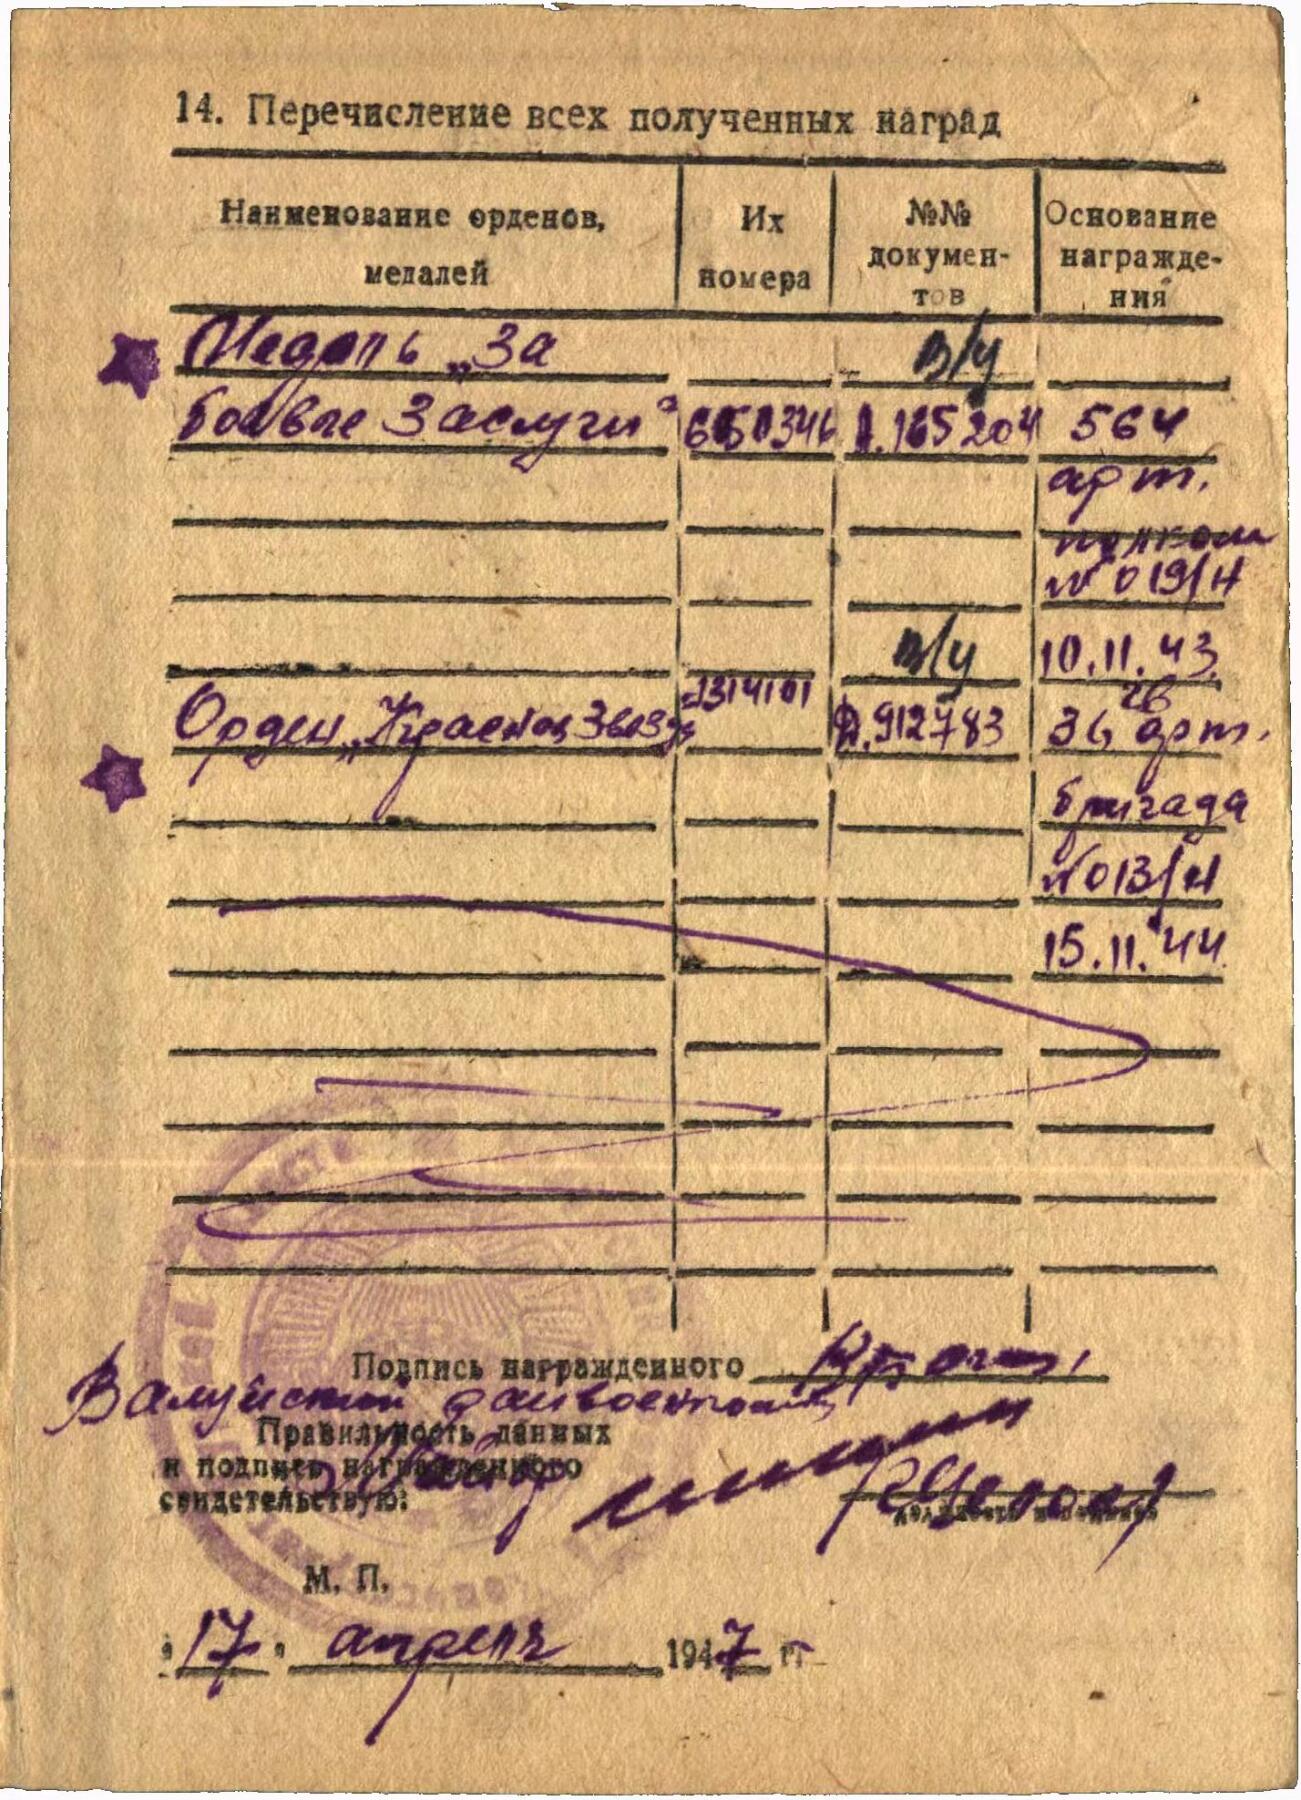 14. Перечисление всех полученных наград
Наименование орденов,
медалей
Их
номера
№№
докумен-
тов
Основание
награжде-
ния
Медаль „За
в/у
боевые Заслуги" 650346 А.165204 564
арт.
полком
№019/Н
в/у 10.11.43.
Орден „Красная Звезда 1314101 А.912783 36 гв арт.
бригада
№013/Н
15.11.44
Подпись награжденного
Валуйский райвоенком
Правильность данных
и подпись награжденного
свидетельствую:
должность и подпись
М. П.
"17" апреля 1947 г.